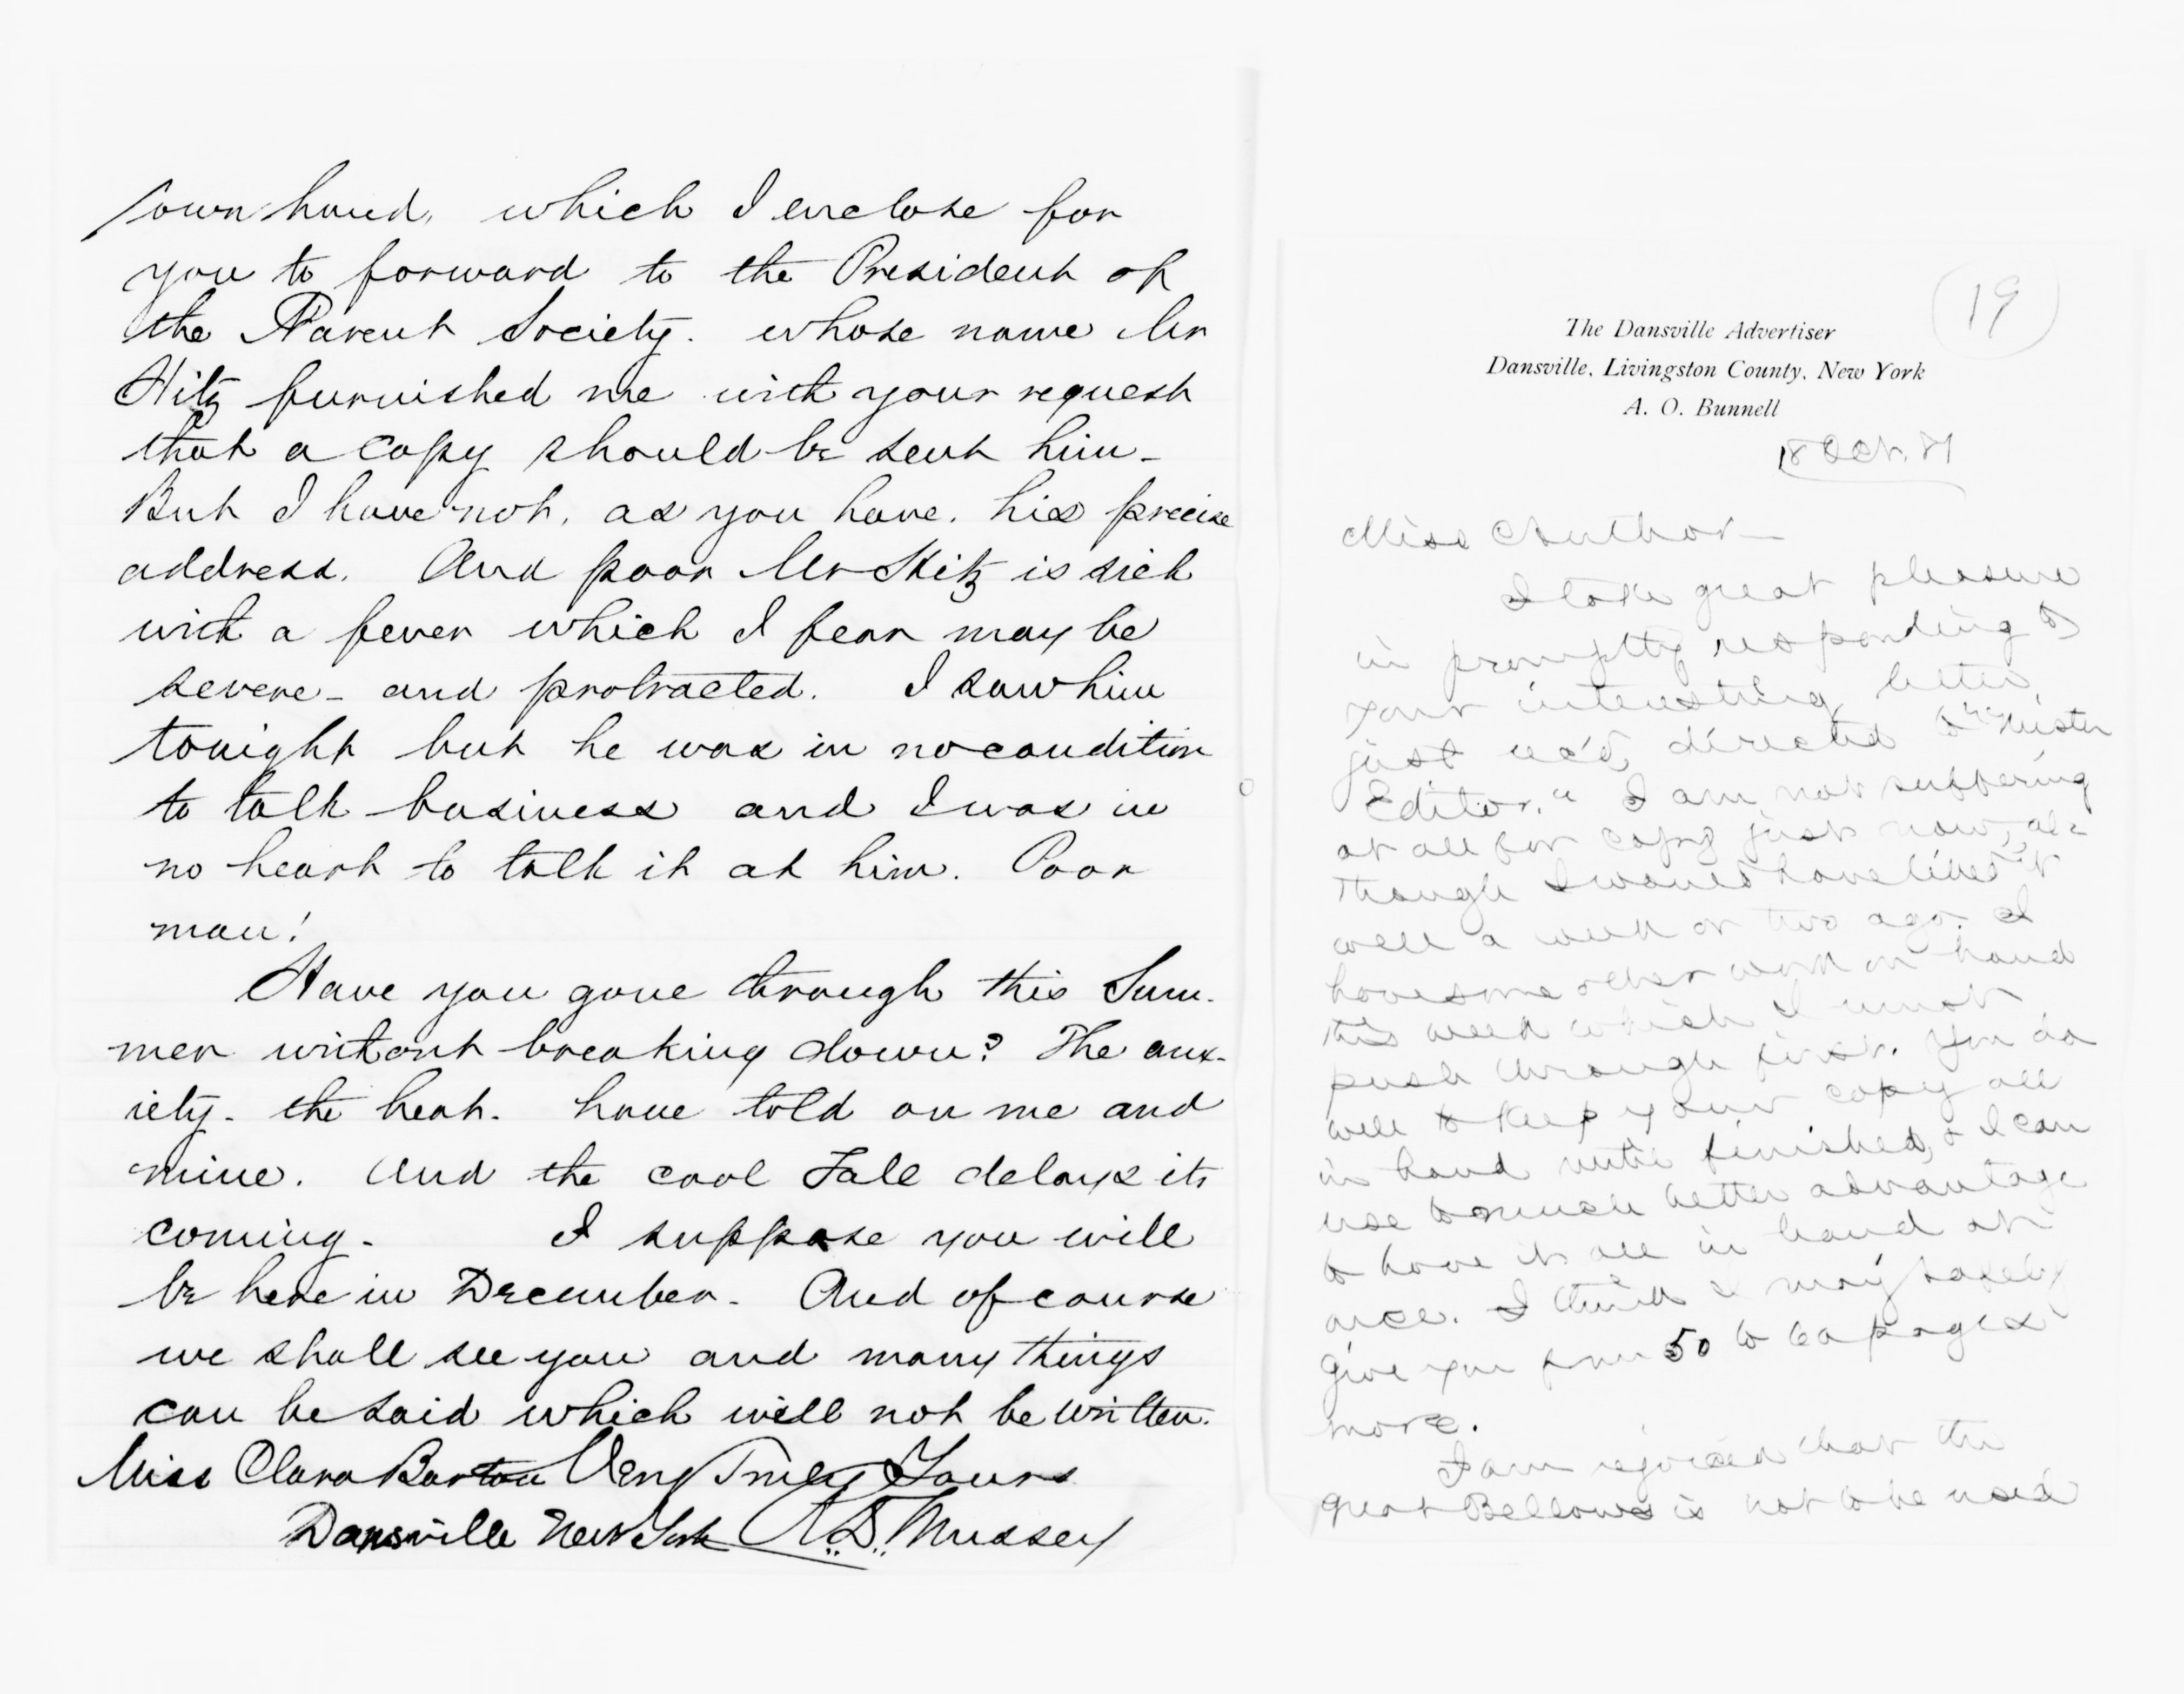 own hand, which I enclose for
you to forward to the President of
the Parent Society. whose name Mr
Hitz furnished me with your request
that a copy should be sent him_
But I have not, as you have. his precise
address. And poor Mr Hitz is sick
with a fever which I fear may be
severe_ and protracted. I saw him
tonight but he was in no condition
to talk business and I was in
no heart to talk it at him. Poor
man!
Have you gone through this Sum-
mer without breaking down? The anx-
iety_ the heat_ have told on me and
mine. And the cool Fall delays its
coming_ I suppose you will
be here in December_ And of course
we shall see you and many things
can be said which will not be written.
Miss Clara Barton Very Truly Yours
Dansville New York R.D. Mussey
19
The Dansville Advertiser
Dansville, Livingston County, New York
A. O. Bunnell
18 Oct. 81
Miss Author_
I take great pleasure
in promptly responding to
your interesting letter,
just rec'd, directed to "Mister
Editor." I am not suffering
at all for copy just now, al-
though I would have liked it
well a week or two ago. I
have some other work on hand
this week which I must
push through first. You do
well to keep your copy all
in hand until finished, & I can
use to much better advantage
to have it all in hand at
once. I think I may safely
give you from 50 to 60 pages
more.
I am rejoiced that the
great Bellows is not to be used